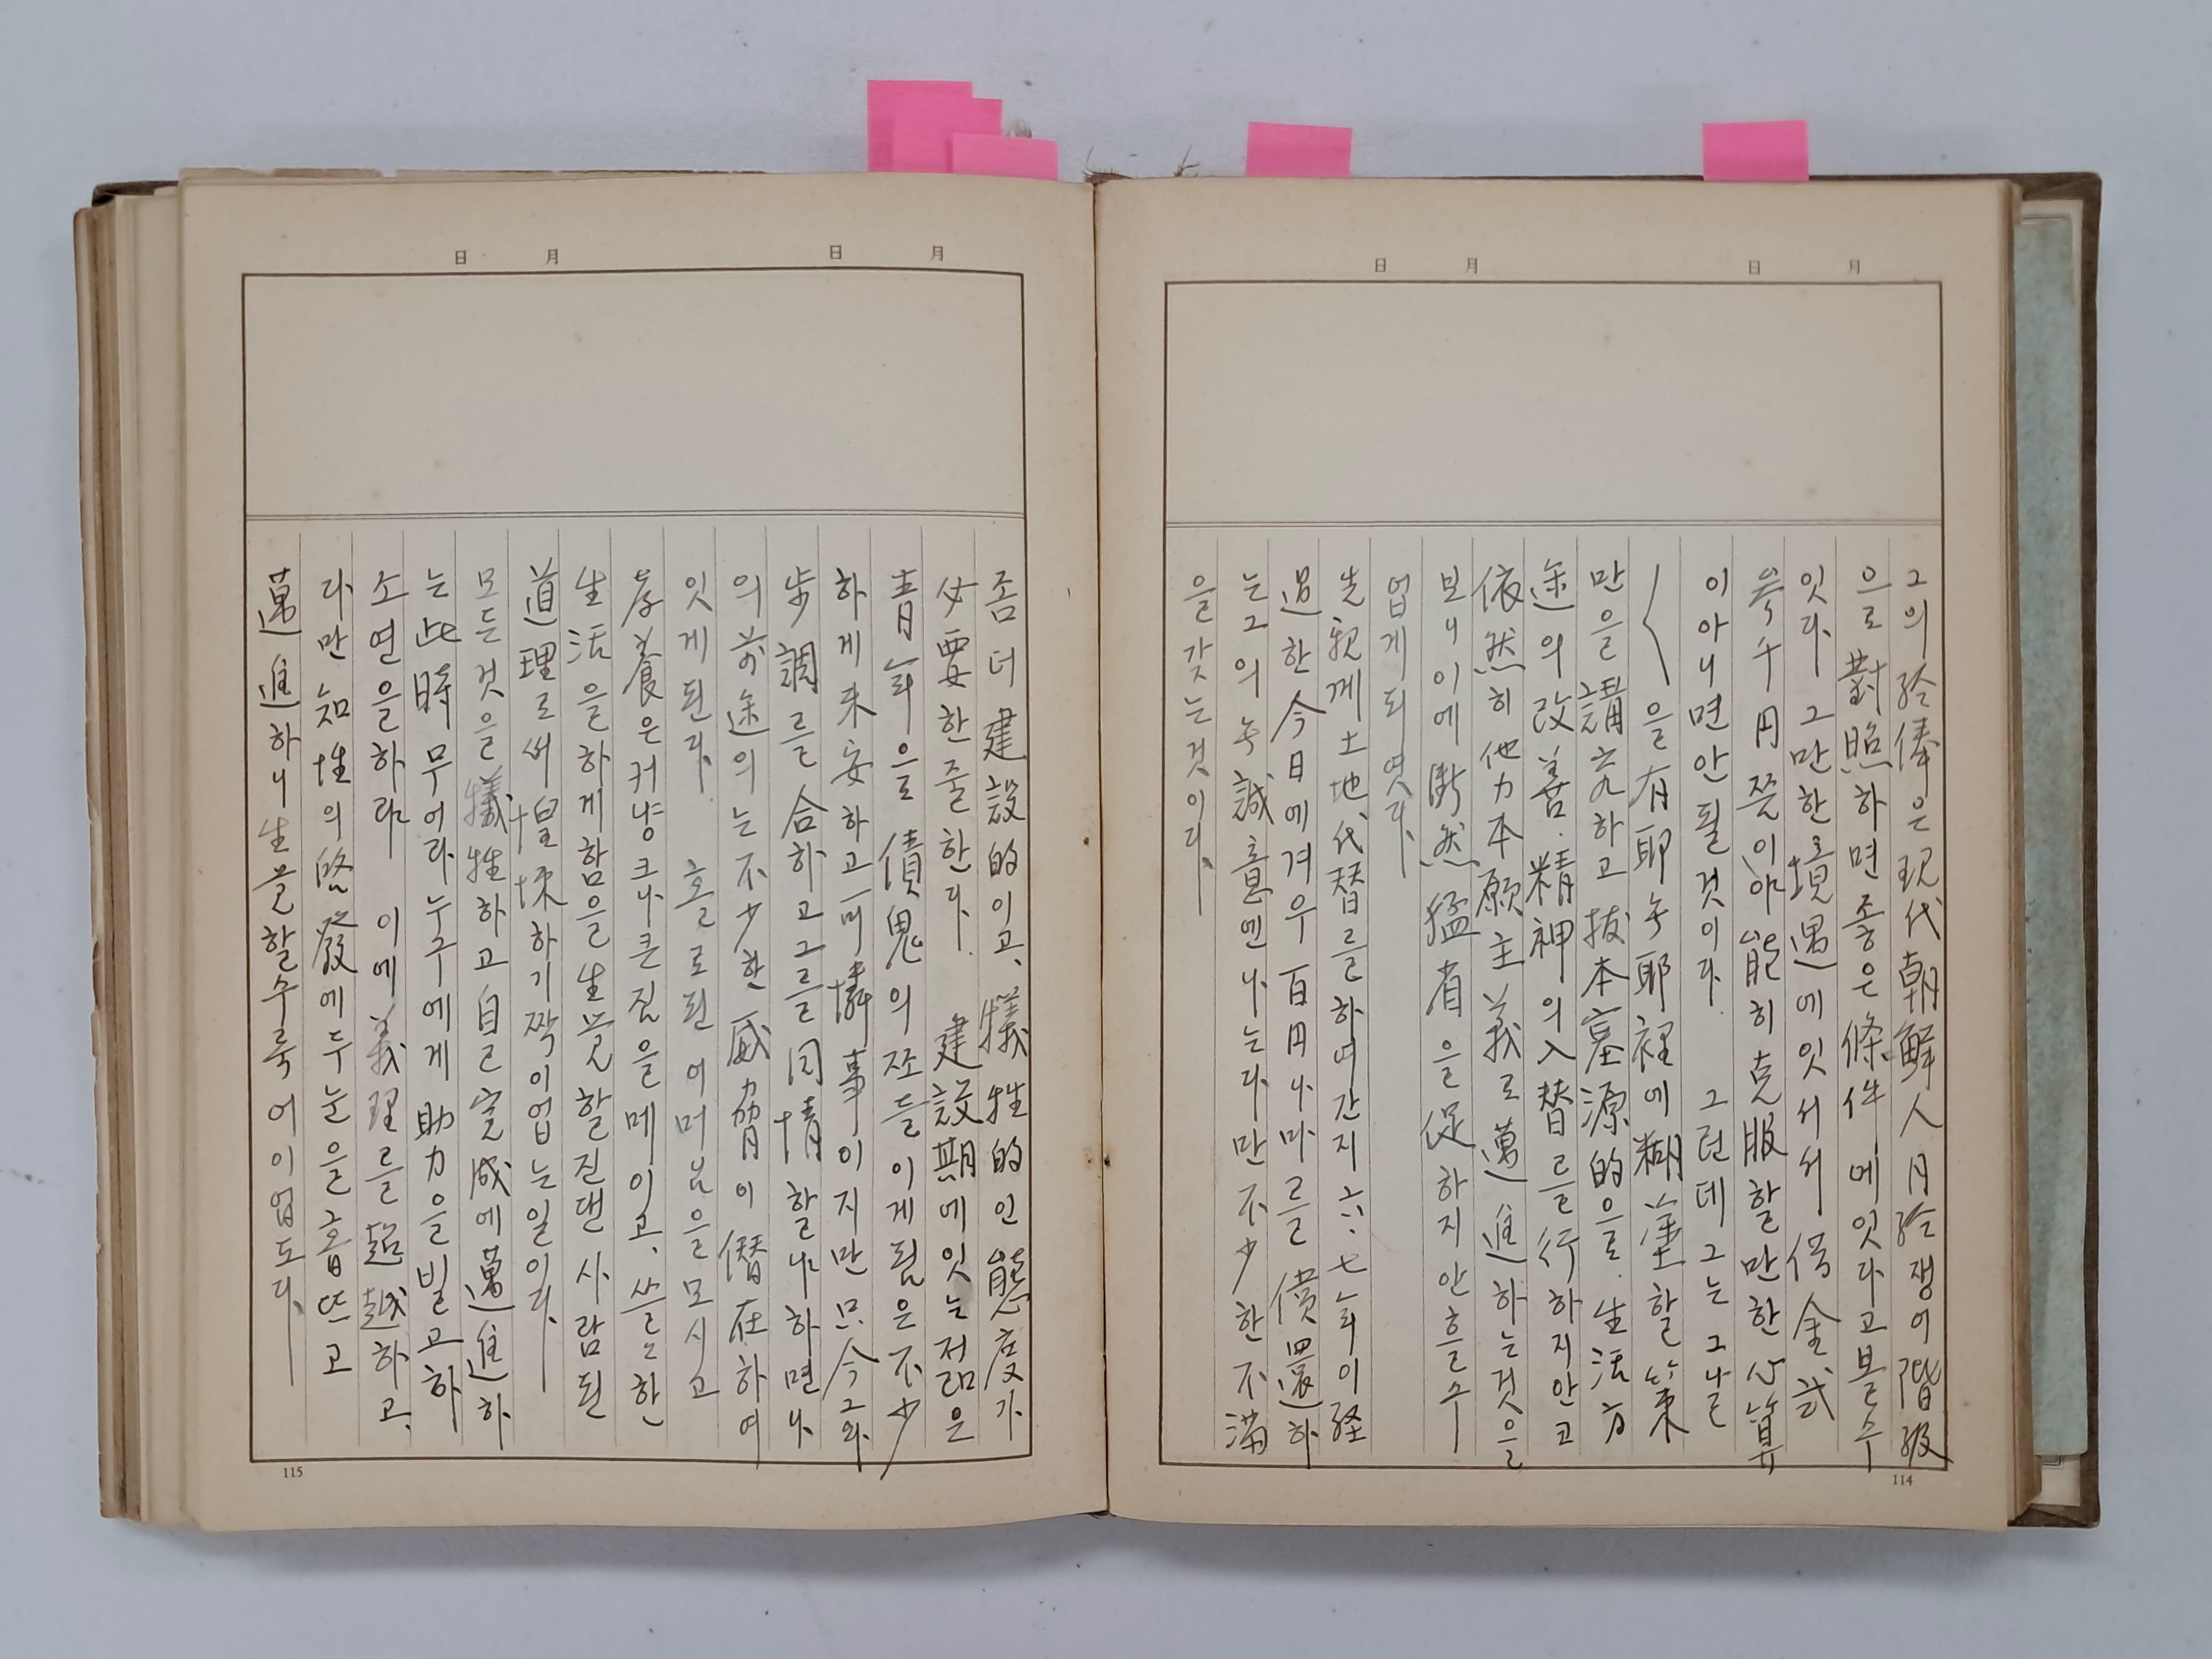 月 日 月 日
그의 給俸은 現代朝鮮人月給쟁이階級
으로 對照하면 좋은 條件에 잇다고 볼수
잇다. 그만한 境遇에 잇서서 借金 貳
千円쯤이야 能히 克服할만한 心算
이 아니면 안될 것이다. 그런데 그는 그날
을 有耶무耶裡에 糊塗할 策
만을 講究하고 拔本塞源的으로 生活方
途의 改善. 精神의 入替를 行하지 안고
依然히 他力本願主義로 邁進하는 것을
보니 이에 斷然 猛省을 促하지 안흘수
업게 되엿다.
先親께 土地代替를 하여간지 六. 七年이 経
過한 今日에 겨우 百円나마를 償還하
는 그의 무誠意엔 나는 다만 不少한 不滿
을 갖는 것이다.
114
月 日 月 日
좀더 建設的이고, 犧牲的인 態度가
必要한줄 한다. 建設期에 잇는 젊은
靑年을 債鬼의 져들이게 됨은 不少
하게 未安하고 可憐事이지만 只今 그와
步調를 合하고 그를 同情할나하면 나
의 前途의는 不少한 威脅이 潛在하여
잇게 된다. 홀로된 어머님을 모시고
孝養은 커냥 크나큰 짐을 메이고, 쓸은한
生活을 하게함을 生覺할진댄 사람된
道理로써 惶悚하기 짝이 업는 일이다.
모든것을 犧牲하고 自己完成에 邁進하
는 此時 무어라 누구에게 助力을 빌고하
소연을 하랴 이에 義理를 超越하고,
다만 知性의 啓發에 두눈을 흡뜨고
邁進하니 生을 할수록 어이업도다.
115